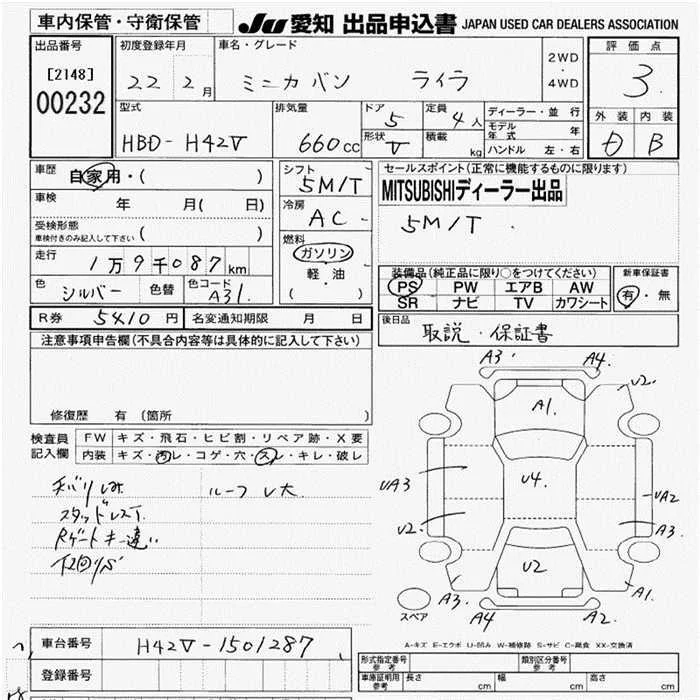 車内保管・守衛保管
JU 愛知 出品申込書 JAPAN USED CAR DEALERS ASSOCIATION
出品番号
[2148]
00232
初度登録年月
22 2月
車名・グレード
ミニカバン ライラ
2WD
・
4WD
評価点
3
外装 内装
D B
型式
HBD-H42V
排気量
660cc
ドア
5
形状
V
定員
4人
積載
kg
ディーラー・並行
モデル年式 年
ハンドル 左・右
車歴
自家用・( )
車検
年 月( 日)
受検形態
車検付きのみ記入して下さい ( )
走行
1万9千087km
色
シルバー
色替
色コード
A31
シフト
5M/T
冷房
AC
燃料
ガソリン
軽・油
( )
セールスポイント(正常に機能するものに限ります)
MITSUBISHIディーラー出品
5M/T
装備品(純正品に限り○をつけてください)
PS PW エアB AW
SR ナビ TV カワシート
新車保証書
有・無
R券 5410円 名変通知期限 月 日
後日品
取説・保証書
注意事項申告欄(不具合内容等は具体的に記入して下さい)
修復歴 有(箇所
検査員記入欄
FW キズ・飛石・ヒビ割・リペア跡・X要
内装 キズ・汚レ・コゲ・穴・スレ・キレ・破レ
ルーフU大
スタッドレスT
Rゲートキー違い
A3 A4
U2
A1
U4
UA3
UA2
U2
A3
U2
A3
A1
A4
A2
スペア
A-キズ E-エクボ U-凹み W-補修跡 S-サビ C-腐食 XX-交換済
車台番号 H42V-1501287
登録番号
形式指定番号
参考
類別区分番号
参考
車庫証明用
参考
長さ cm 幅 cm 高さ cm